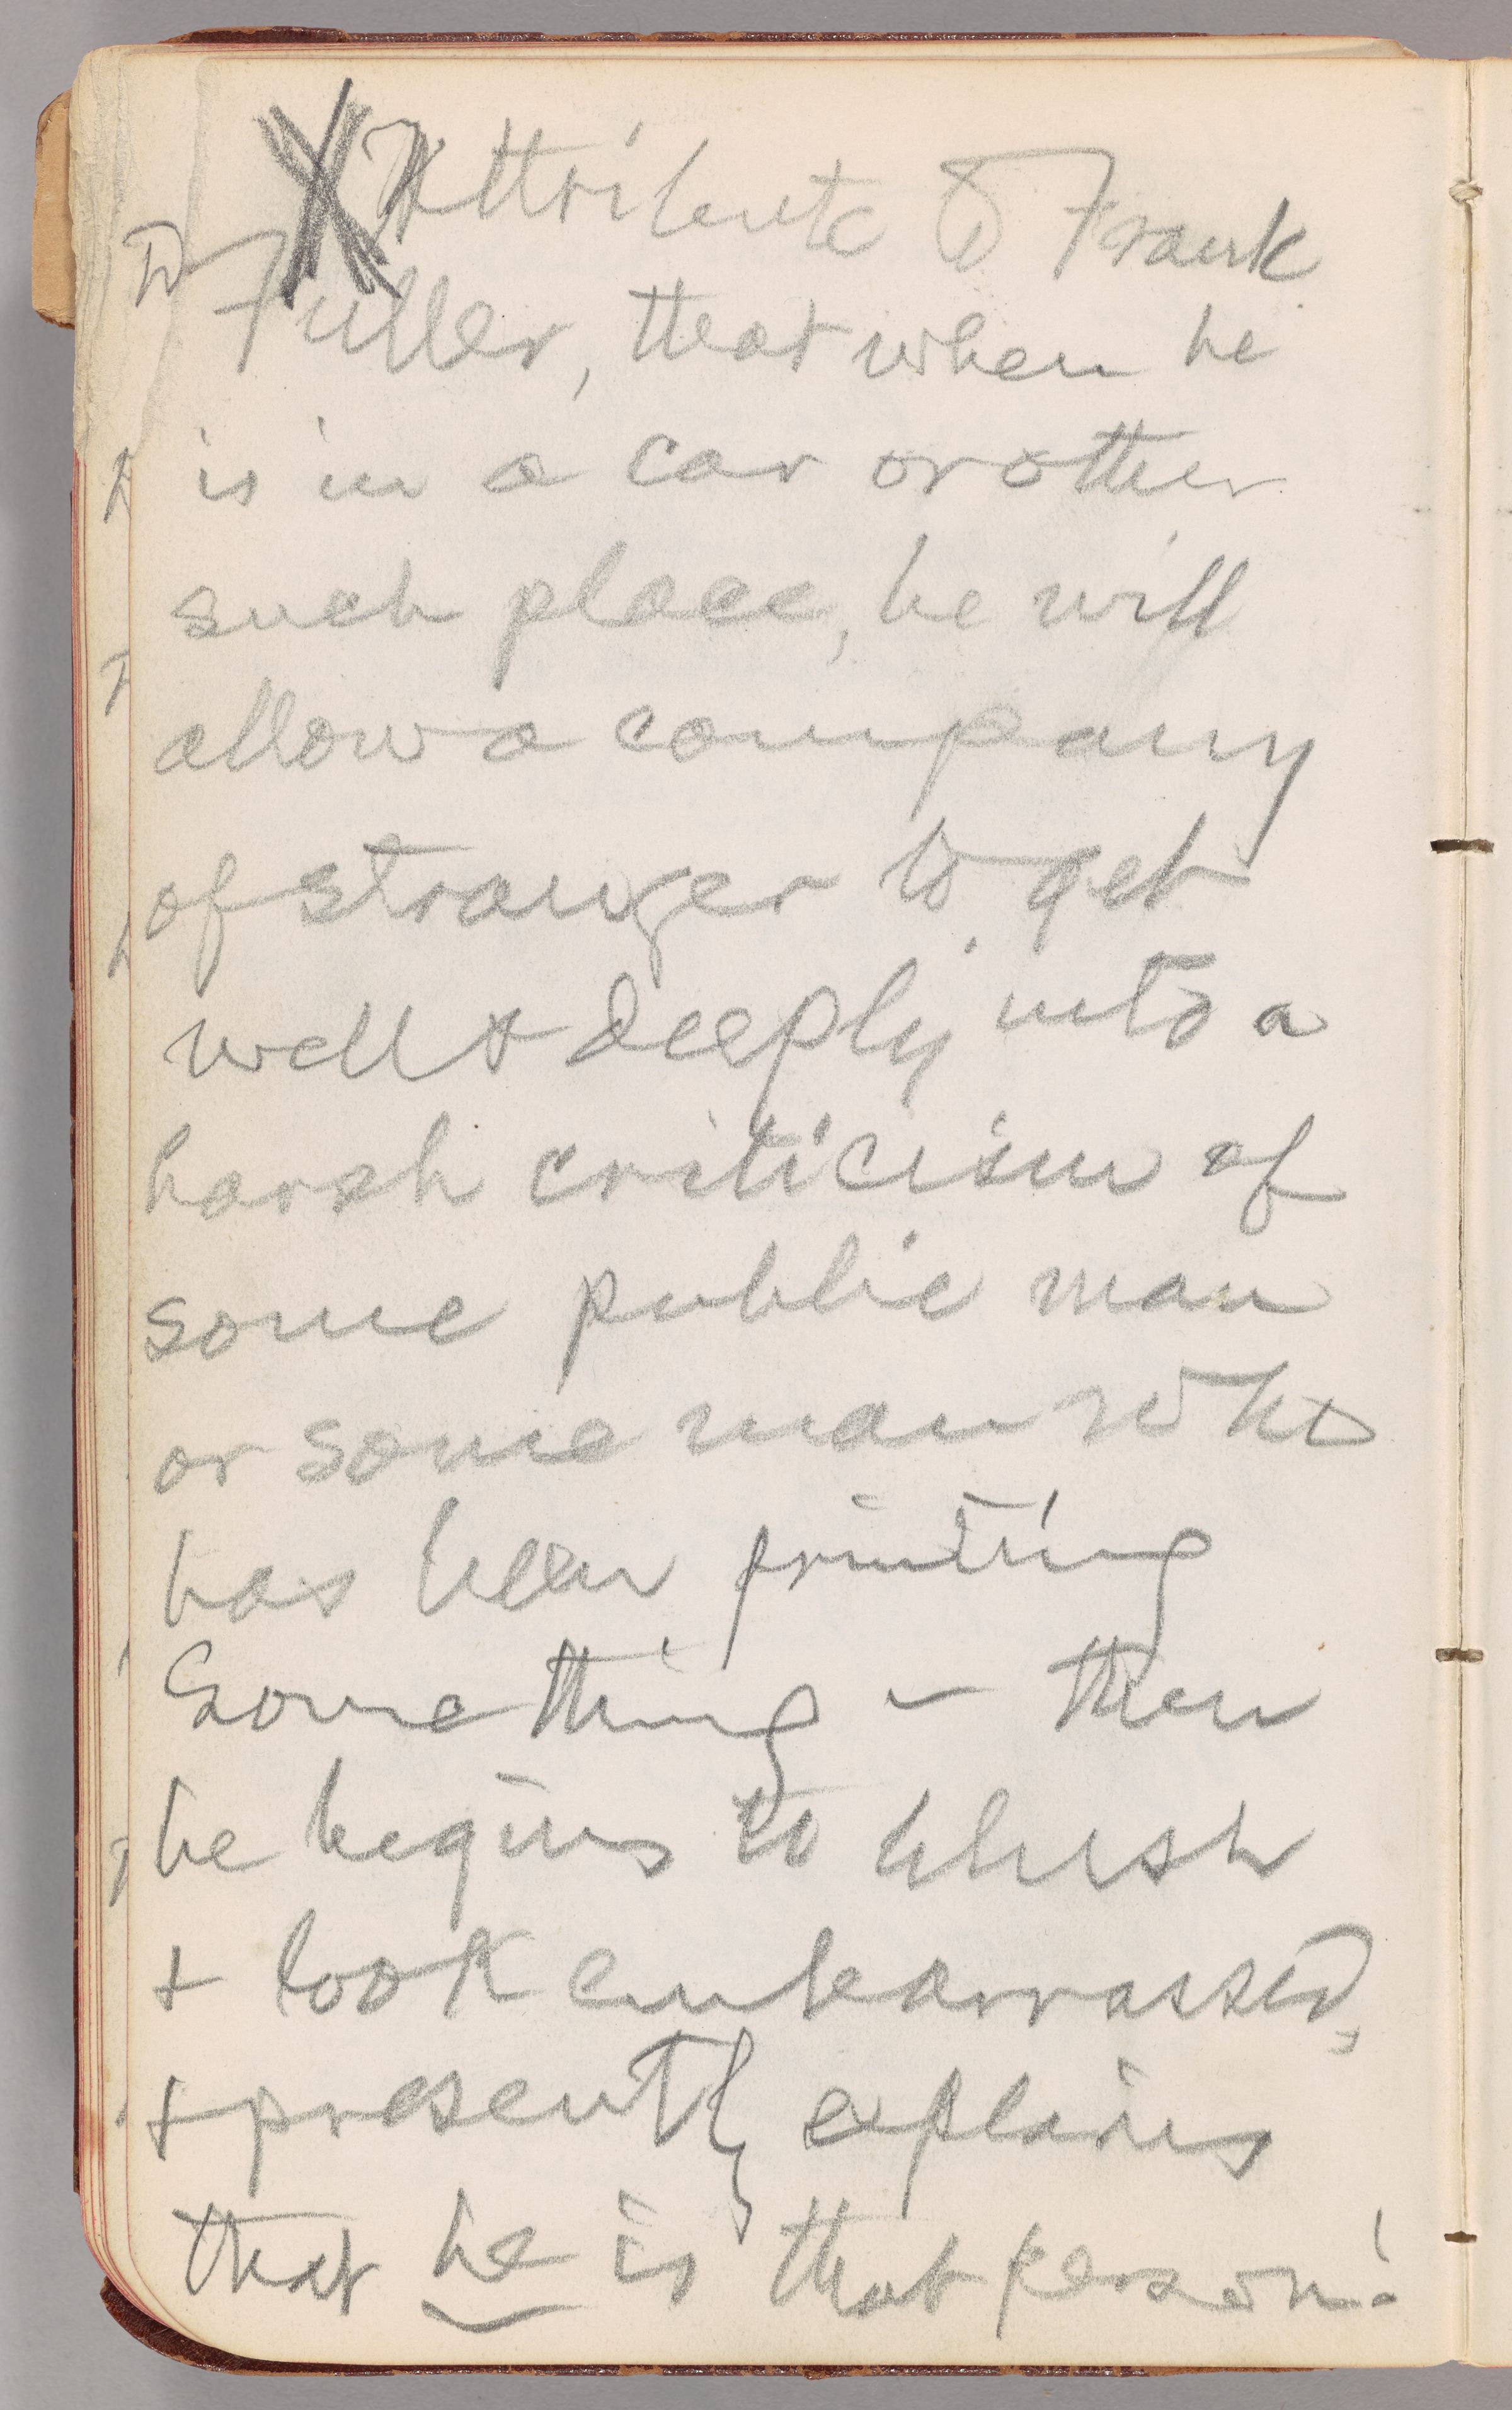 X Attribute to Frank
Fuller, that when he
is in a car or other
such place, he will
allow a company
of stranger to get
well & deeply into a
harsh criticism of
some public man
or some man who
has been printing
something — then
he begins to blush
& look embarrassed,
& presently explains
that he is that person!